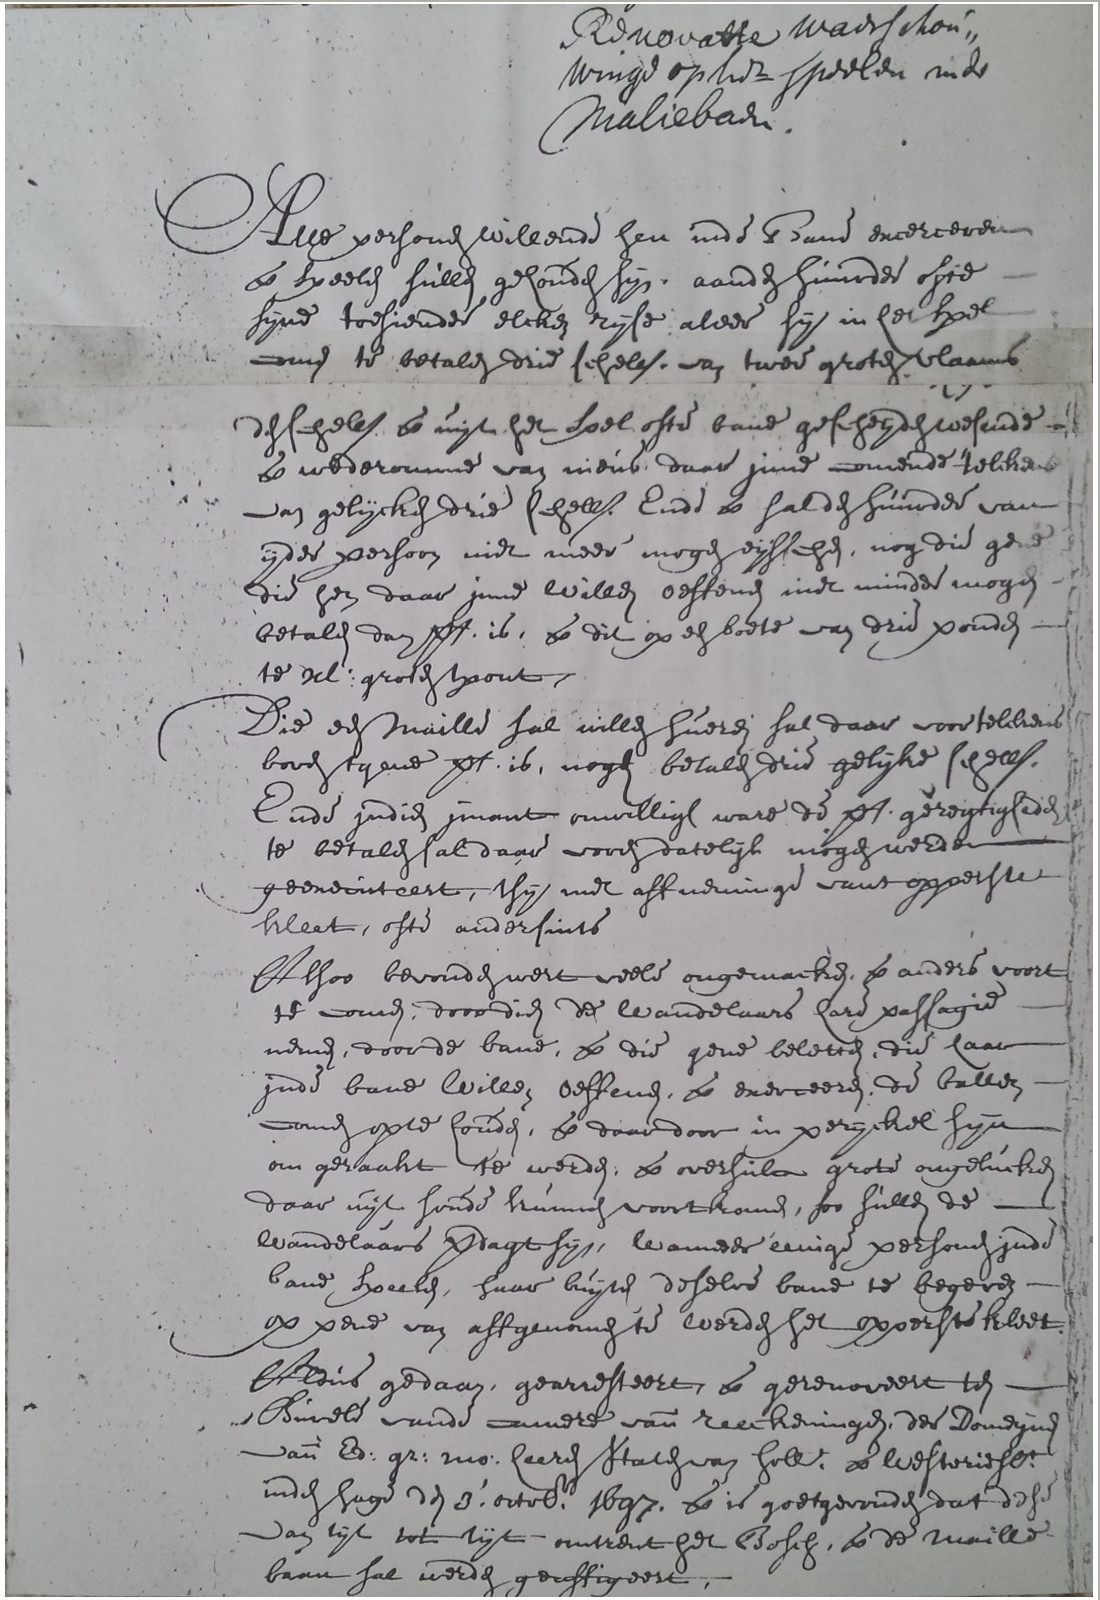 Renovatie Waerschou„
winge op het speelen inde
Maliebaen.
Alle persoonen willende hen inde Bane exerceren
& speelen sullen gehouden syn. aanden huurder ofte
syne toesiender elcken ryse aleer sy in het spel
comen te betalen drie schell. van twee groten vlaams
den schell. & uyt het spel ofte bane gescheyden wesende
& wederomme van nieus daar inne comende telckens
van gelycken drie schell. Ende & sal den huurder van
yder persoon niet meer mogen eysschen, nog die gene
die hen daar inne willen oeffenen niet minder mogen
betalen dan is, & dit op een boete van drie ponden
te xl: groten tpont,
Die een Maille sal willen hueren sal daar voor telckens
boven tgene is, nogh betalen drie gelyke schell.
Ende indien imant onwilligh ware de geregtigheden
te betalen sal daar voren datelyk mogen werden
geexecuteert, tsy met affneminge vant opperste
kleet, ofte andersints
Alsoo bevonden wert veele ongemacken & anders voort
te comen, door dien de wandelaars hare passagie
nemen, door de bane, & die gene beletten, die haar
inde bane willen oeffenen, & exerceeren, de ballen
comen op te houden, & daar door in peryckel syn
om geraakt te werden, & oversulcx grote ongelucken
daar uyt soude kunnen voortkomen, soo sullen de
wandelaars verdagt syn, wanneer eenige persoonen inde
bane speelen, haar buyten deselve bane te begeven
op pene van affgenomen te werden het opperste kleet.
Aldus gedaan, gearresteert, & gerenoveert ten
Burele vande camere van Reeckeningen der Domeynen
van Ed: gr: mo: heeren Staten van Holl.t & Westvriesl.t
inden Hage den 3.e octob.r 1697. & is goetgevonden dat dese
van tyt tot tyt omtrent het Bosch, & de Maille
baan sal werden geaffigeert,